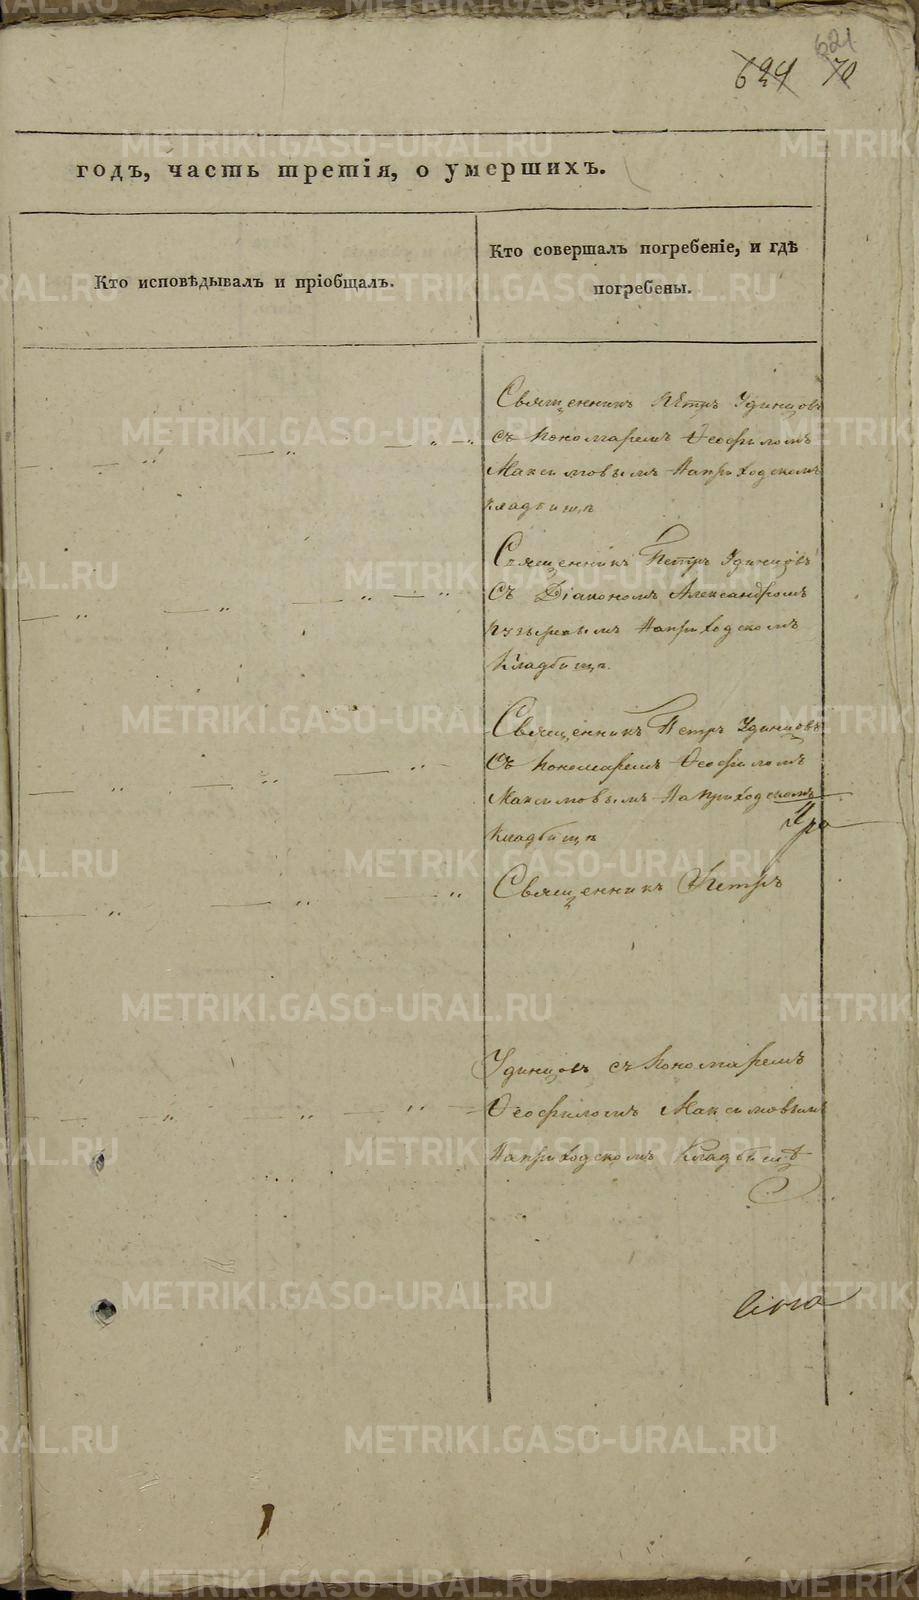 621
624 70
годъ, часть третія, о умершихъ.
Кто исповѣдывалъ и пріобщалъ.
Кто совершалъ погребеніе, и гдѣ
погребены.
Священникъ Пѣтръ Удинцовъ
съ пономаремъ Ѳеофиломъ
Максимовымъ Наприходскомъ
кладбищѣ
Священникъ Петръ Удинцовъ
Съ Діакономъ Александромъ
Наприходскомъ
Кладбищѣ.
Священникъ Петръ Удинцовъ
Съ пономаремъ Ѳеофиломъ
Максимовымъ Наприходскомъ
Кладбищѣ
Священникъ Петръ
Удинцовъ съ пономаремъ
Ѳеофиломъ Максимовымъ
Наприходскомъ Кладбищѣ
METRIKI.GASO-URAL.RU